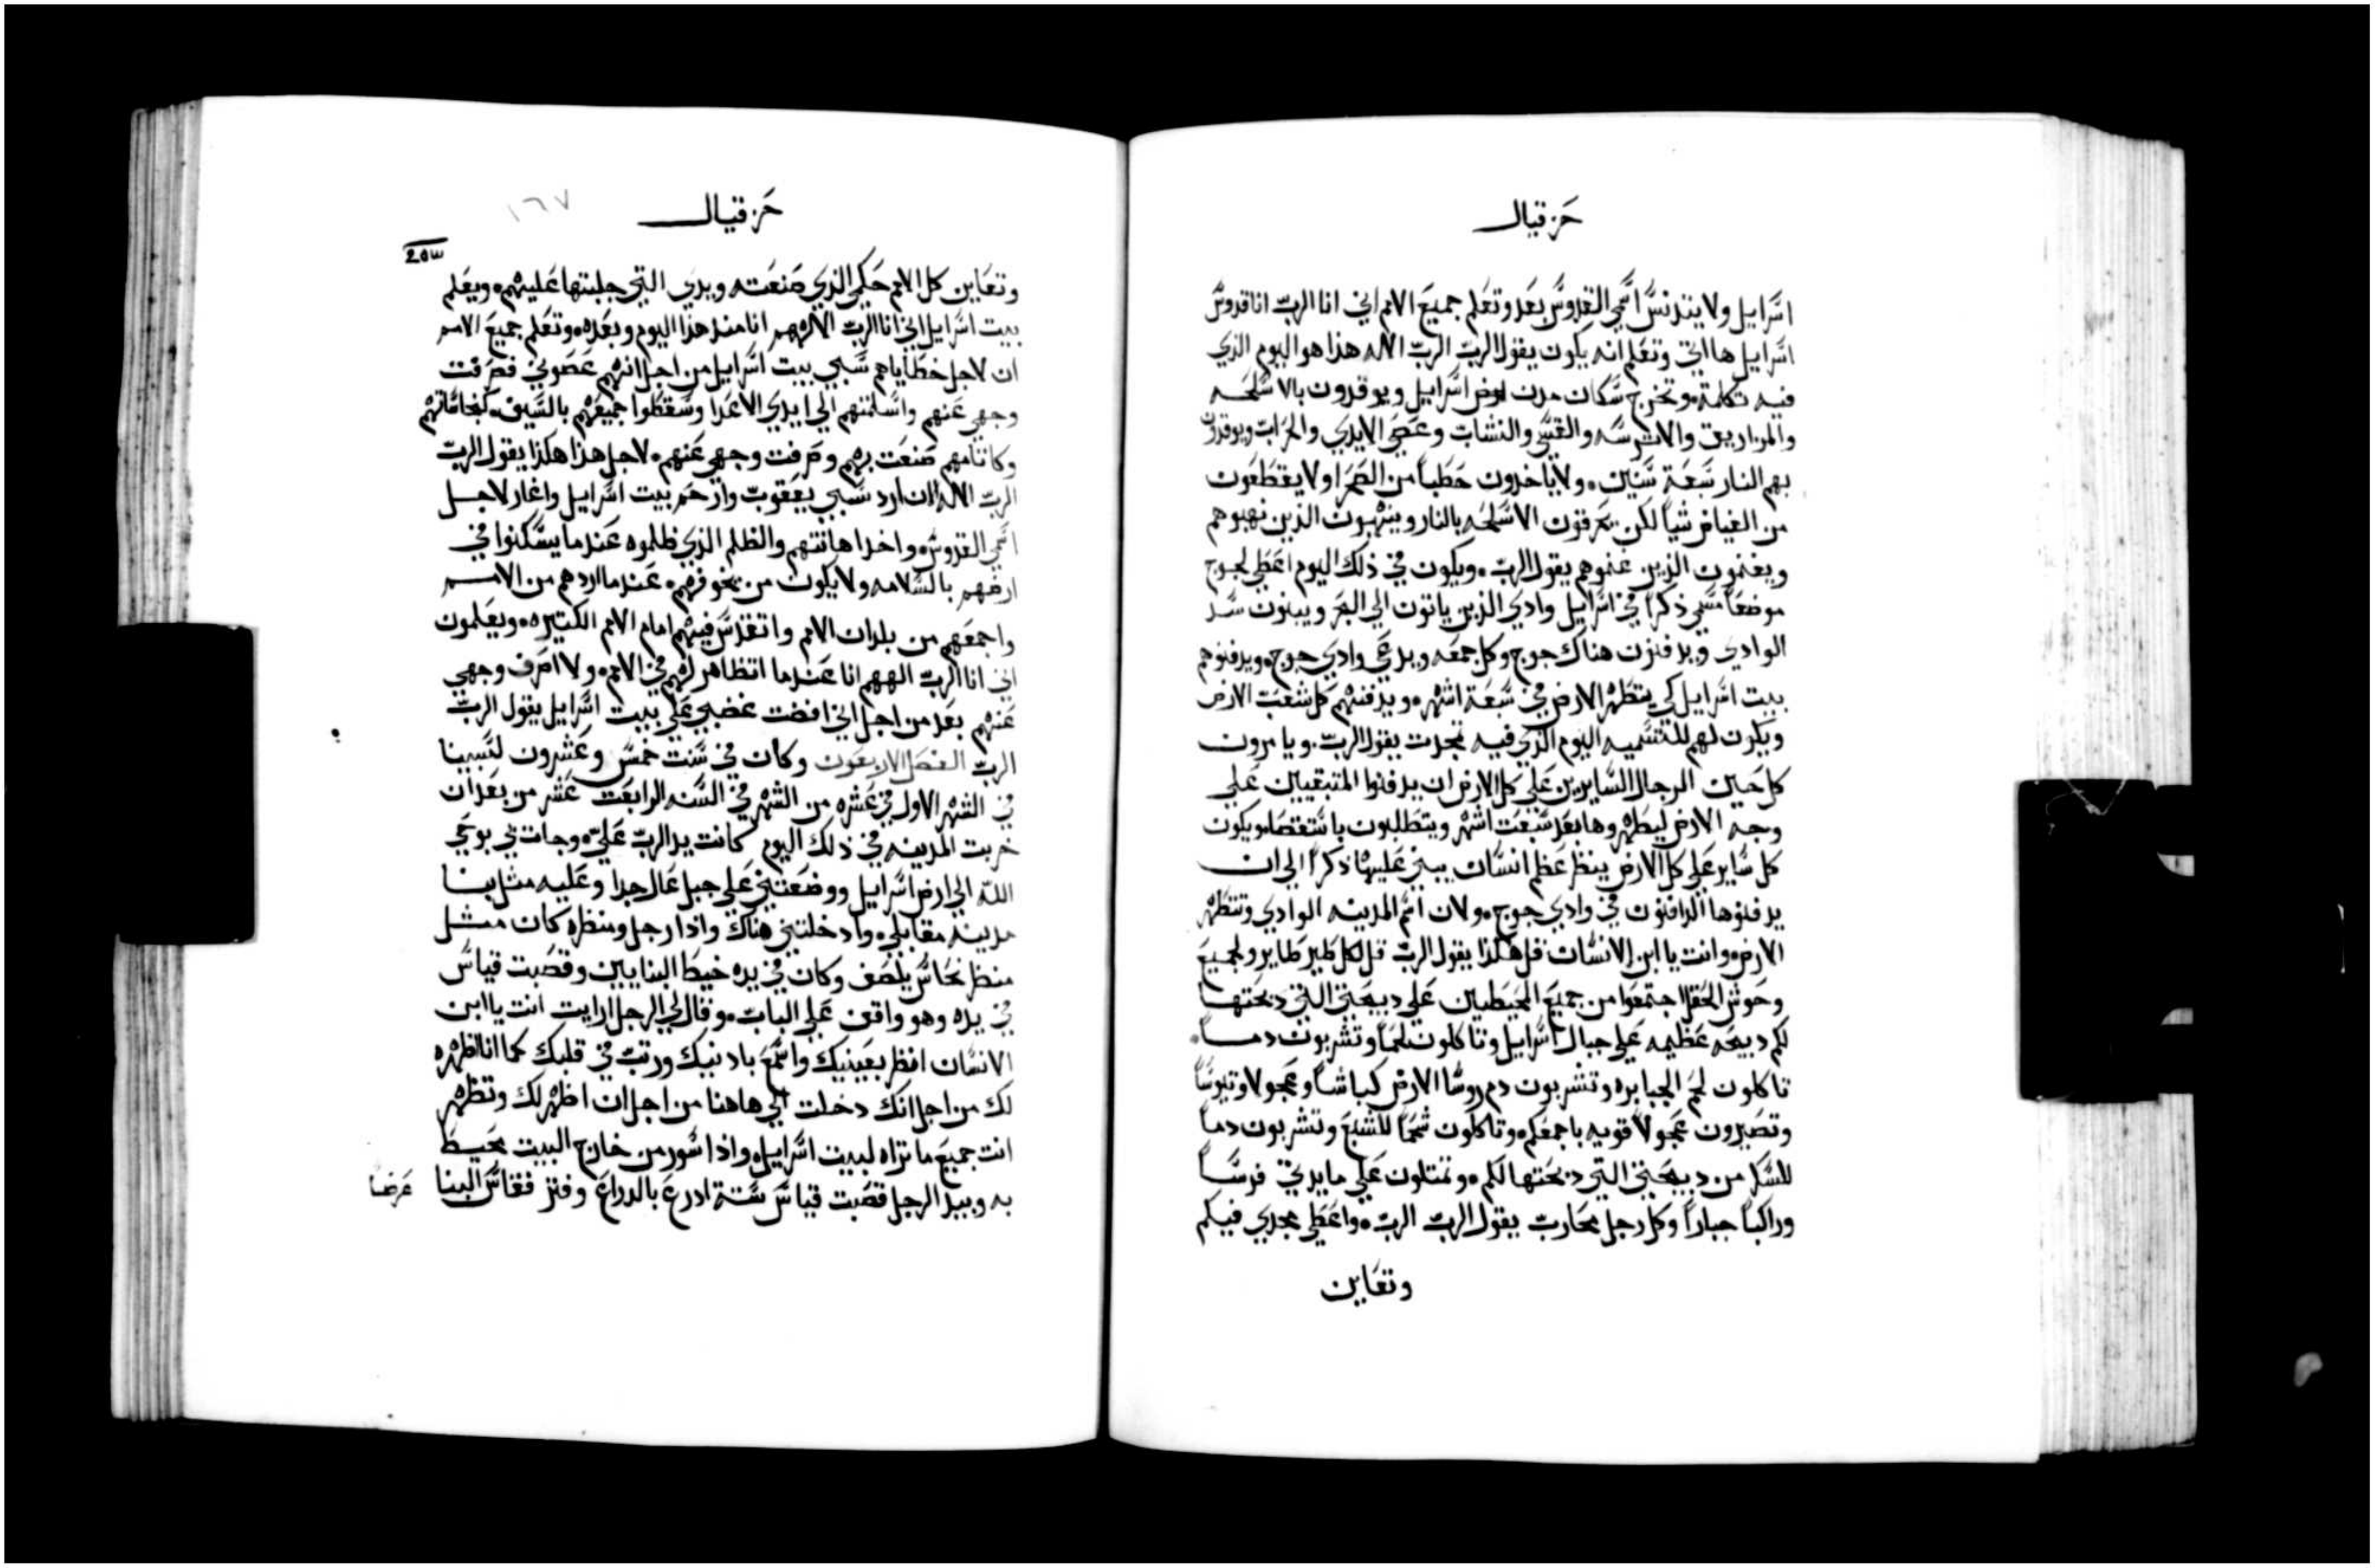 حزقيال
اسرايل ولا يتدنس اسمي القدوس بعد وتعلم جميع الامم اني انا الرب انا قدوس
اسرايل ها اتي وتعلم انه يكون يقول الرب الرب الاله هذا هو اليوم الذي
فيه تكلمة وتخرج سكان مدن ارض اسرايل ويوقدون بالاسلحه
والمزاريق والاترسه والقسي والنشاب وعصي الايدي والحراب ويوقدون
بهم النار سبعة سنين ولا ياخدون حطباً من الصحرا ولا يقطعون
من الغياض شياً لكن يحرقون الاسلحه بالنار وينهبون الذين نهبوهم
ويغنمون الذين غنموهم يقول الرب ويكون في ذلك اليوم اعطي لجوج
موضعاً مسمي ذكراً في اسرايل وادي الذين ياتون الي البحر ويبنون سد
الوادي ويدفنون هناك جوج وكل جمعه ويدعي وادي جوج ويدفنوهم
بيت اسرايل كي يتطهر الارض في سبعة اشهر ويدفنهم كل شعب الارض
ويكون لهم للتسميه اليوم الذي فيه تمجدت يقول الرب ويامرون
كل حين الرجال السايرين علي كل الارض ان يدفنوا المتبقيين علي
وجه الارض ليطهروها بعد سبعت اشهر ويتطلبون باستقصا ويكون
كل ساير علي كل الارض ينظر عظم انسان يبني عليها ذكراً الي ان
يدفنوها الدافنون في وادي جوج ولان اسم المدينه الوادي وتتطهر
الارض وانت يا ابن الانسان قل هكذا يقول الرب قل لكل طير طاير ولجميع
وحوش الحقل اجتمعوا من جميع المحيطين علي دبيحتي التي دبحتها
لكم دبيحه عظيمه علي جبال اسرايل وتاكلون لحماً وتشربون دماً
تاكلون لحم الجبابره وتشربون دم روسا الارض كباشاً وعجولا وتيوساً
وتصيرون عجولاً قويه باجمعكم وتاكلون شحماً للشبع وتشربون دماً
للسكر من دبيحتي التي دبحتها لكم وتمتلون علي مايدتي فرساً
وراكباً جباراً وكل رجل محارب يقول الرب الرب واعطي مجدي فيكم
وتعاين
حزقيال
١٦٧
وتعاين كل الامم حكمي الذي صنعته ويدي التي جلبتها عليهم ويعلم
بيت اسرايل اني انا الرب الاههم انا مند هذا اليوم وبعده وتعلم جميع الامم
ان لاجل خطاياهم سبي بيت اسرايل من اجل انهم عصوني فصرفت
وجهي عنهم واسلمتهم الي ايدي الاعدا وسقطوا جميعهم بالسيف كنجاساتهم
وكاتامهم صنعت بهم وصرفت وجهي عنهم لاجل هذا هكذا يقول الرب
الرب الاله الان ارد سبي يعقوب وارحم بيت اسرايل واغار لاجل
اسمي القدوس واخدا اهانتهم والظلم الذي ظلموه عندما يسكنوا في
ارضهم بالسلامه ولا يكون من يخوفهم عندما اردهم من الامم
واجمعهم من بلدان الامم واتقدس فيهم امام الامم الكتيره ويعلمون
اني انا الرب الههم انا عندما اتظاهر لهم في الامم ولا اصرف وجهي
عنهم بعد من اجل اني افضت غضبي علي بيت اسرايل يقول الرب
الرب الفصل الاربعون وكان في سنت خمس وعشرون لسبينا
في الشهر الاول في عشره من الشهر في السنه الرابعت عشر من بعد ان
خربت المدينه في ذلك اليوم كانت يد الرب علي وجات بي بوحي
الله الي ارض اسرايل ووضعتني علي جبل عال جدا وعليه مثل بنا
مدينه مقابلي وادخلتني هناك واذا رجل ومنظره كان مثل
منظر نحاس يلصف وكان في يده خيط البنايين وقصبت قياس
في يده وهو واقف علي الباب وقال لي الرجل ارايت انت يا ابن
الانسان انظر بعينيك واسمع بادنيك ورتب في قلبك كما انا اظهره
لك من اجل انك دخلت الي هاهنا من اجل ان اظهر لك وتظهر
انت جميع ما تراه لبيت اسرايل واذا سور من خارج البيت محيط
به وبيد الرجل قصبت قياس ستة ادرع بالدراع وفتر فقاس البنا
عرضا